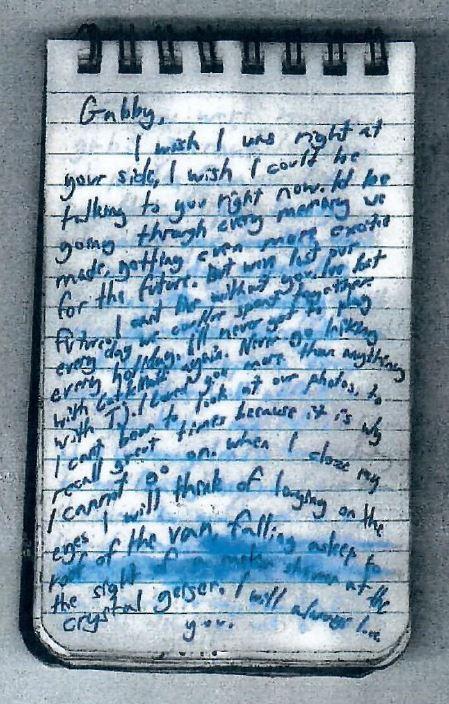 Gabby,
I wish I was right at
your side, I wish I could be
talking to you right now. Id be
going through every memory we
made, getting even more excited
for the future. But we've lost our
future. I cant live without you. Ive lost
every day we could've spent together.
every holiday. Ill never get to play
with again. Never go hiking
with TJ. I loved you more than anything
I cant bear to look at our photos, to
recall great times because it is why
I cannot go on. when I close my
eyes I will think of laughing on the
roof of the van, falling asleep to
the sight of a meteor shower at the
crystal geyser. I will always love
you.